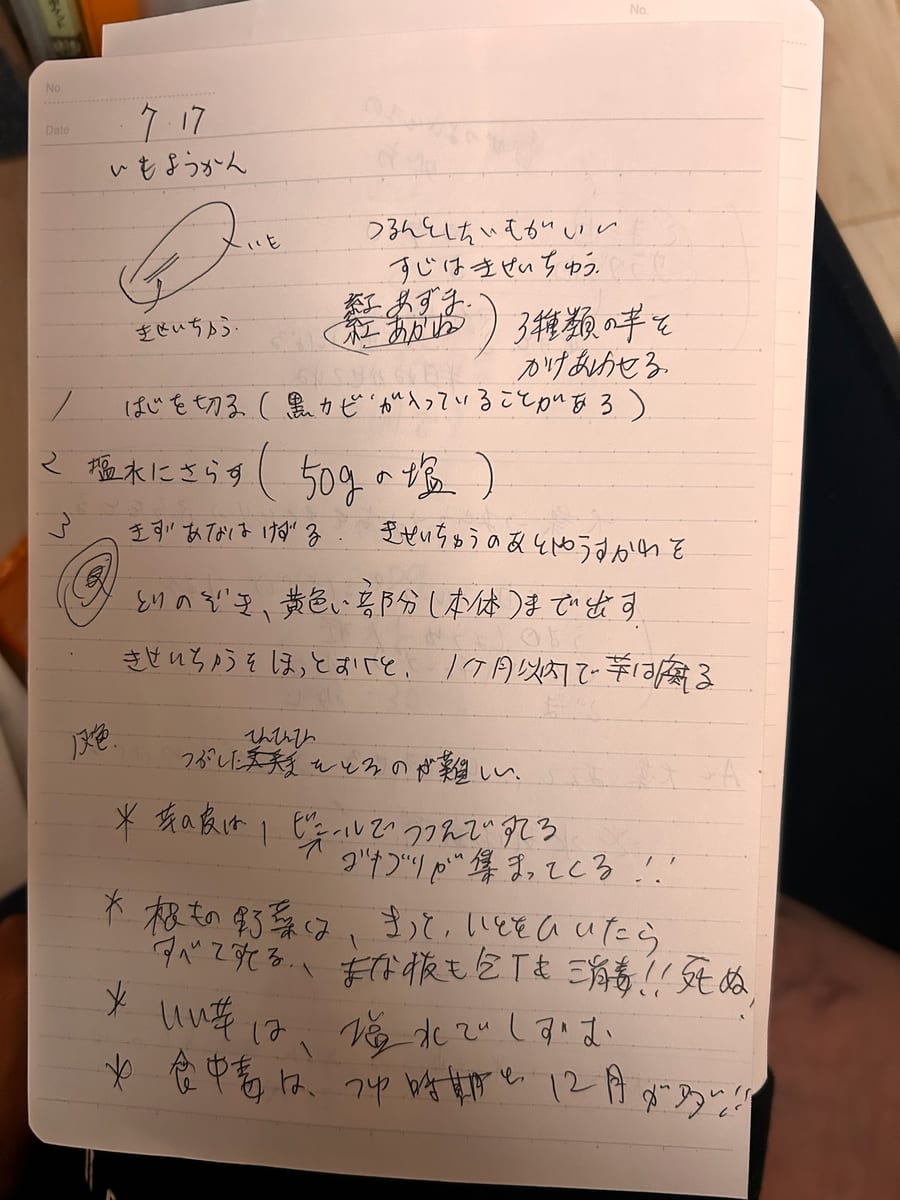 No.
No.
Date 7.17
いもようかん
いも
つるんとしたいもがいい
すじはきせいちゅう.
きせいちゅう.
紅あずま.
紅あかね
3種類の芋を
かけあわせる
1 はじを切る(黒カビが入っていることがある)
2 塩水にさらす(50gの塩)
3 きずあなはけずる. きせいちゅうのあとやうすかわを
とりのぞき、黄色い部分(本体)まで出す.
きせいちゅうをほっとおくと、1ヶ月以内で芋は腐る
灰色.
つぶした をとるのが難しい.
* 芋の皮は、ビニールでつつんですてる
ゴキブリが集まってくる!!
* 根もの野菜は、きっと、いとをひいたら
すべてすてる、まな板も包丁も消毒!!死ぬ!
* いい芋は、塩水でしずむ
* 食中毒は、つゆ時期と12月が多い!!